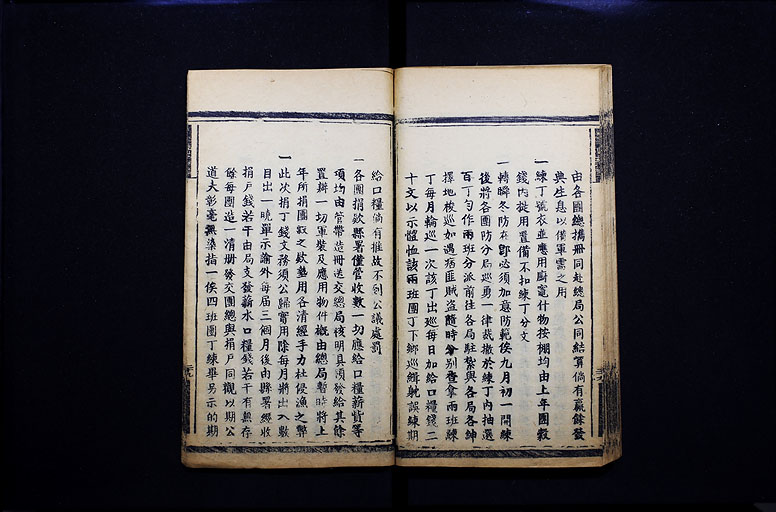 由各團總攜冊同赴總局公同結算倘有贏餘發
典生息以備軍需之用
一練丁號衣並應用厨竈什物按棚均由上年團穀
錢內提用置備不扣練丁分文
一轉瞬冬防在卽必須加意防範俟九月初一開練
後將各團防分局巡勇一律裁撤於練丁內抽選
百丁勻作兩班分派前往各局駐紮與各局各紳
擇地梭巡如遇痞匪賊盗隨時分別查拿兩班練
丁每月輪巡一次該丁出巡每日加給口糧錢二
十文以示體恤該兩班團丁下鄉巡緝躭誤練期
給口糧倘有推故不到公議處罰
一各團捐欵縣署僅管收數一切應給口糧薪貲等
項均由管帶造冊送交總局核明具領發給其餘
置辦一切軍裝及應用物件概由總局暫時將上
年所捐團穀之欵墊用各清經手力杜侵漁之弊
一此次捐丁錢文務須公歸實用除每月將出入數
目出一曉單示諭外每屆三個月後由縣署經收
捐戶錢若干由局支發薪水口糧錢若干有無存
餘每團造一清册發交團總與捐戶同觀以期公
道大彰毫無染指一俟四班團丁練畢另示的期